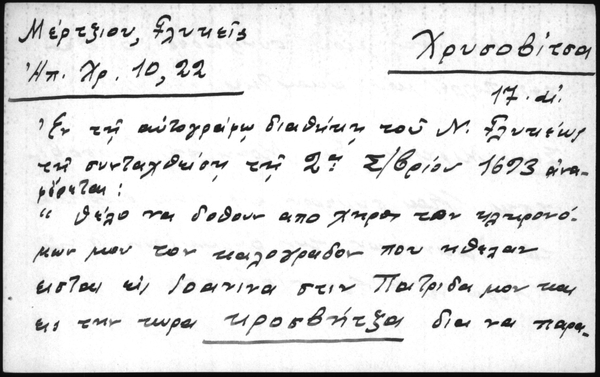 Μέρτζιου, Γλυκεῖς
Ἠπ. Χρ. 10, 22
Χρυσοβίτσα
17. αἰ.
Ἐν τῇ αὐτογράφῳ διαθήκῃ τοῦ Ν. Γλυκέως
τῇ συνταχθείσῃ τῇ 2ᾳ Σ/βρίου 1693 ἀνα-
φέρεται:
“ θέλο να δοθουν απο χηρον των κληρονό-
μων μου τον καλογραδον που ηθελαν
εισται εις Ιοανινα στιν Πατριδα μου και
εις την χωρα κροσβήτζα δια να παρα-